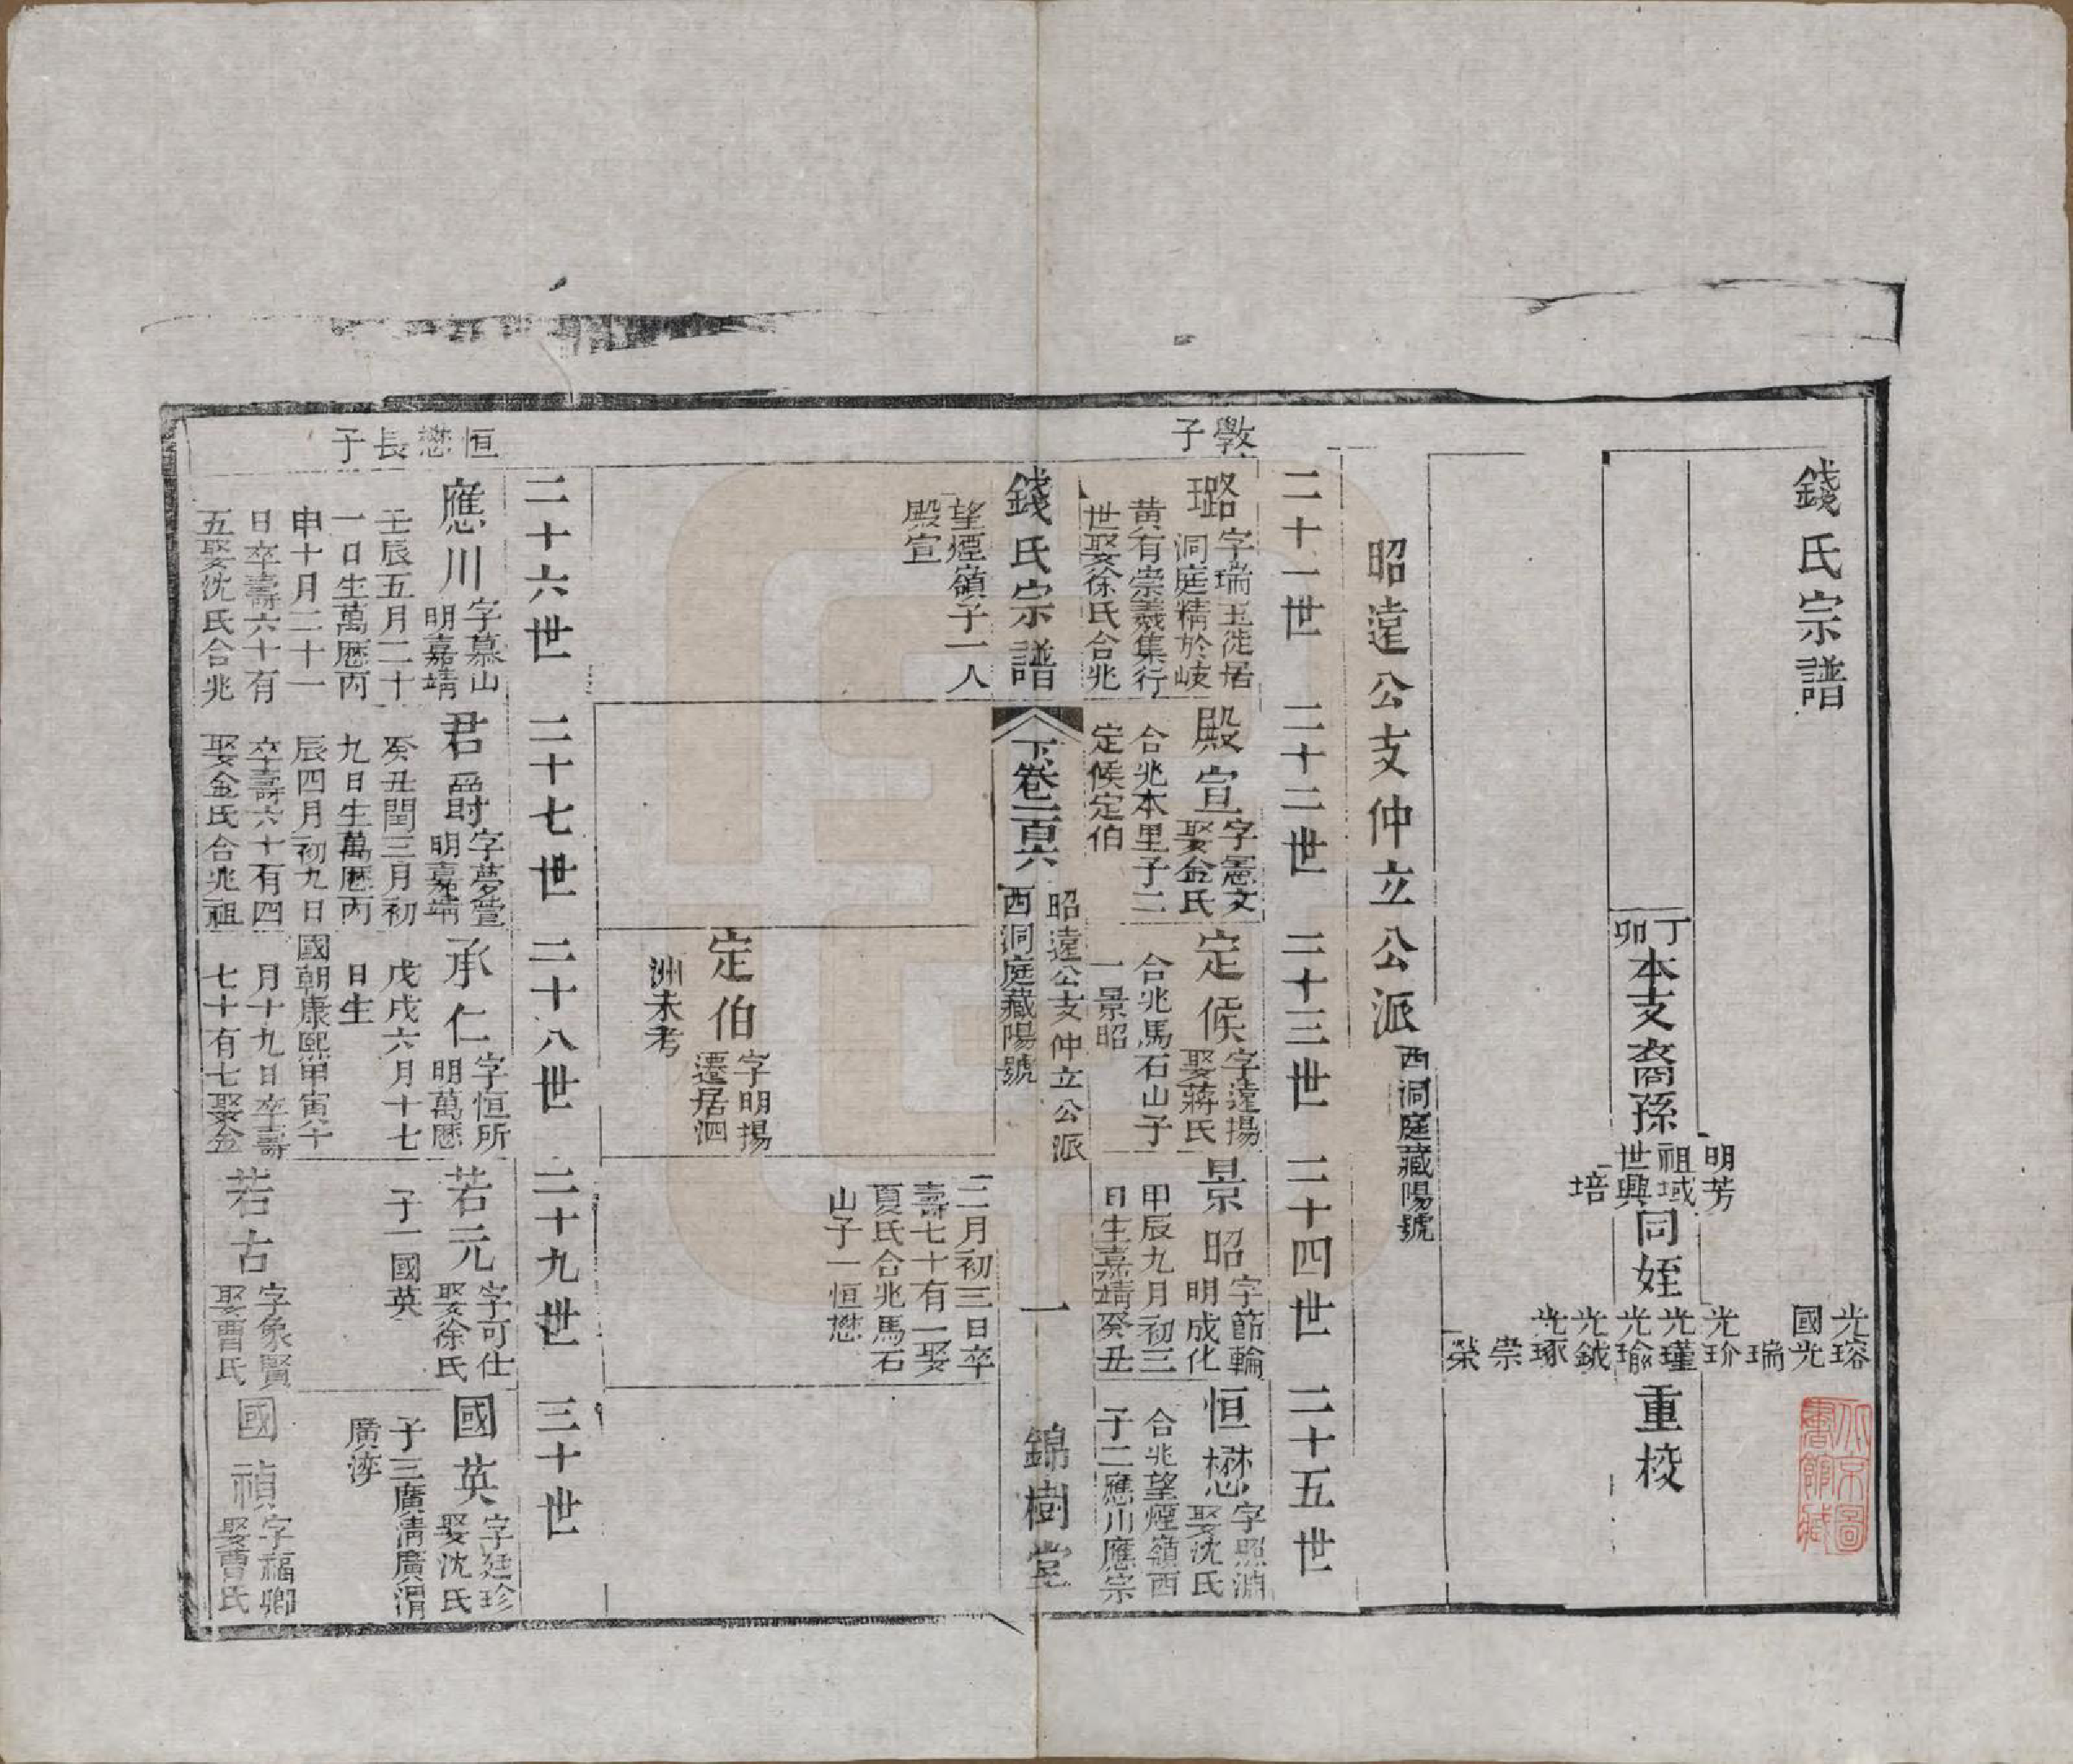 錢氏宗譜
丁卯本支裔孫
明芳
祖域
世興
培
同姪
光瑢
國光
瑞
光玠
光瑾
光瑜
光鉞
光琢
崇
榮
重校
昭遠公支仲立公派
西洞庭藏陽號
二十一世
二十二世
二十三世
二十四世
二十五世
斆子
璐
字瑞玉徙居
洞庭精於岐
黃有崇義集行
世娶徐氏合兆
望煙嶺子一人
殿宣
殿宣
字憲文
娶金氏
合兆本里子二
定候定伯
定候
字遠揚
娶蔣氏
合兆馬石山子
一景昭
景昭
字節輪
明成化
甲辰九月初三
日生嘉靖癸丑
二月初三日卒
壽七十有一娶
夏氏合兆馬石
山子一恒懋
恒懋
字照淵
娶沈氏
合兆望煙嶺西
子二應川應宗
錢氏宗譜
下卷二百六
昭遠公支仲立公派
西洞庭藏陽號
一
錦樹堂
定伯
字明揚
遷居泗
洲未考
二十六世
二十七世
二十八世
二十九世
三十世
恒懋長子
應川
字慕山
明嘉靖
壬辰五月二十
一日生萬厯丙
申十月二十一
日卒壽六十有
五娶沈氏合兆
君爵
字夢萱
明嘉靖
癸丑閏三月初
九日生萬厯丙
辰四月初九日
卒壽六十有四
娶金氏合兆祖
承仁
字恒所
明萬厯
戊戌六月十七
日生
國朝康熙甲寅六
月十九日卒壽
七十有七娶金
若元
字可仕
娶徐氏
子一國英
國英
字廷珍
娶沈氏
子三廣淸廣渭
廣淳
若古
字象賢
娶曹氏
國禎
字福卿
娶曹氏
北京圖
書館藏